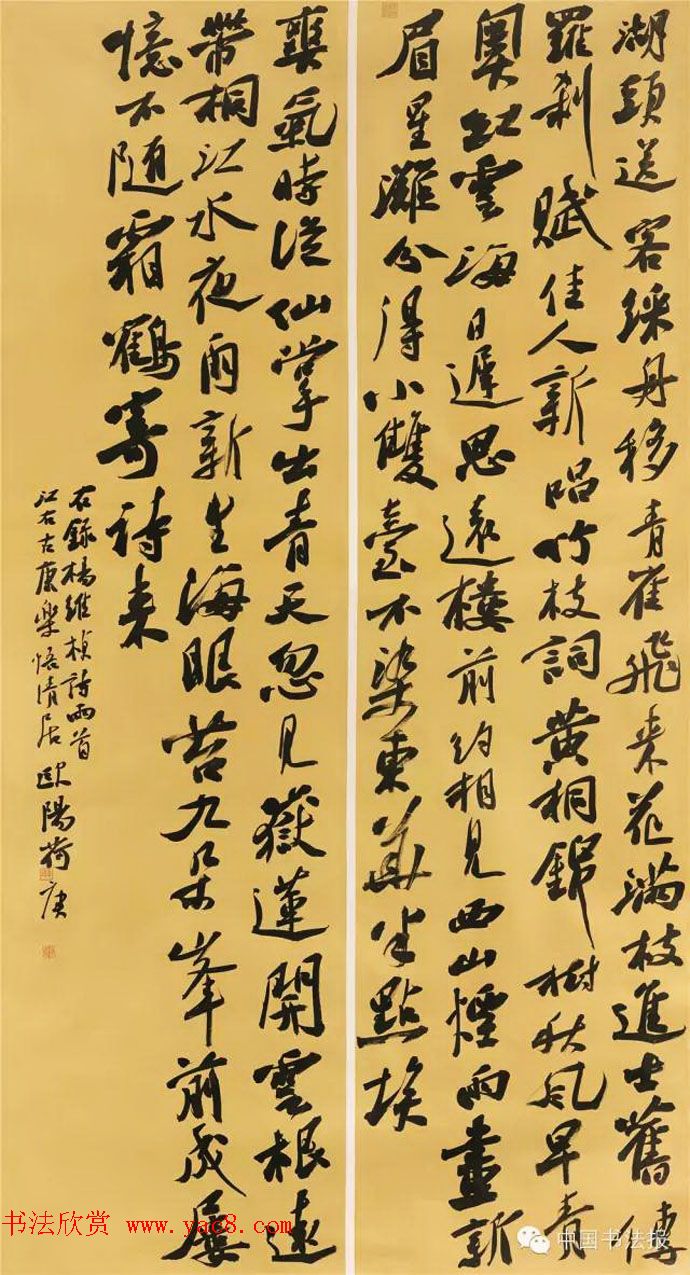 湖頭送客綵舟移青雀飛來花滿枝進士舊傳
羅刹賦佳人新唱竹枝詞黄桐錦樹秋風早青
奧紅雲海日遲思遠樓前約相見西山煙雨畫新
眉星灘分得小雙臺不染東華半點埃
爽氣時従仙掌出青天忽見嶽蓮開雲根遠
帶桐江水夜雨新生海眼苔九朵峯前成屢
憶不隨霜鶴寄詩来
右錄楊維楨詩兩首
江右古康樂悟清居歐陽荷庚
书法欣赏 www.yac8.com
中国书法报